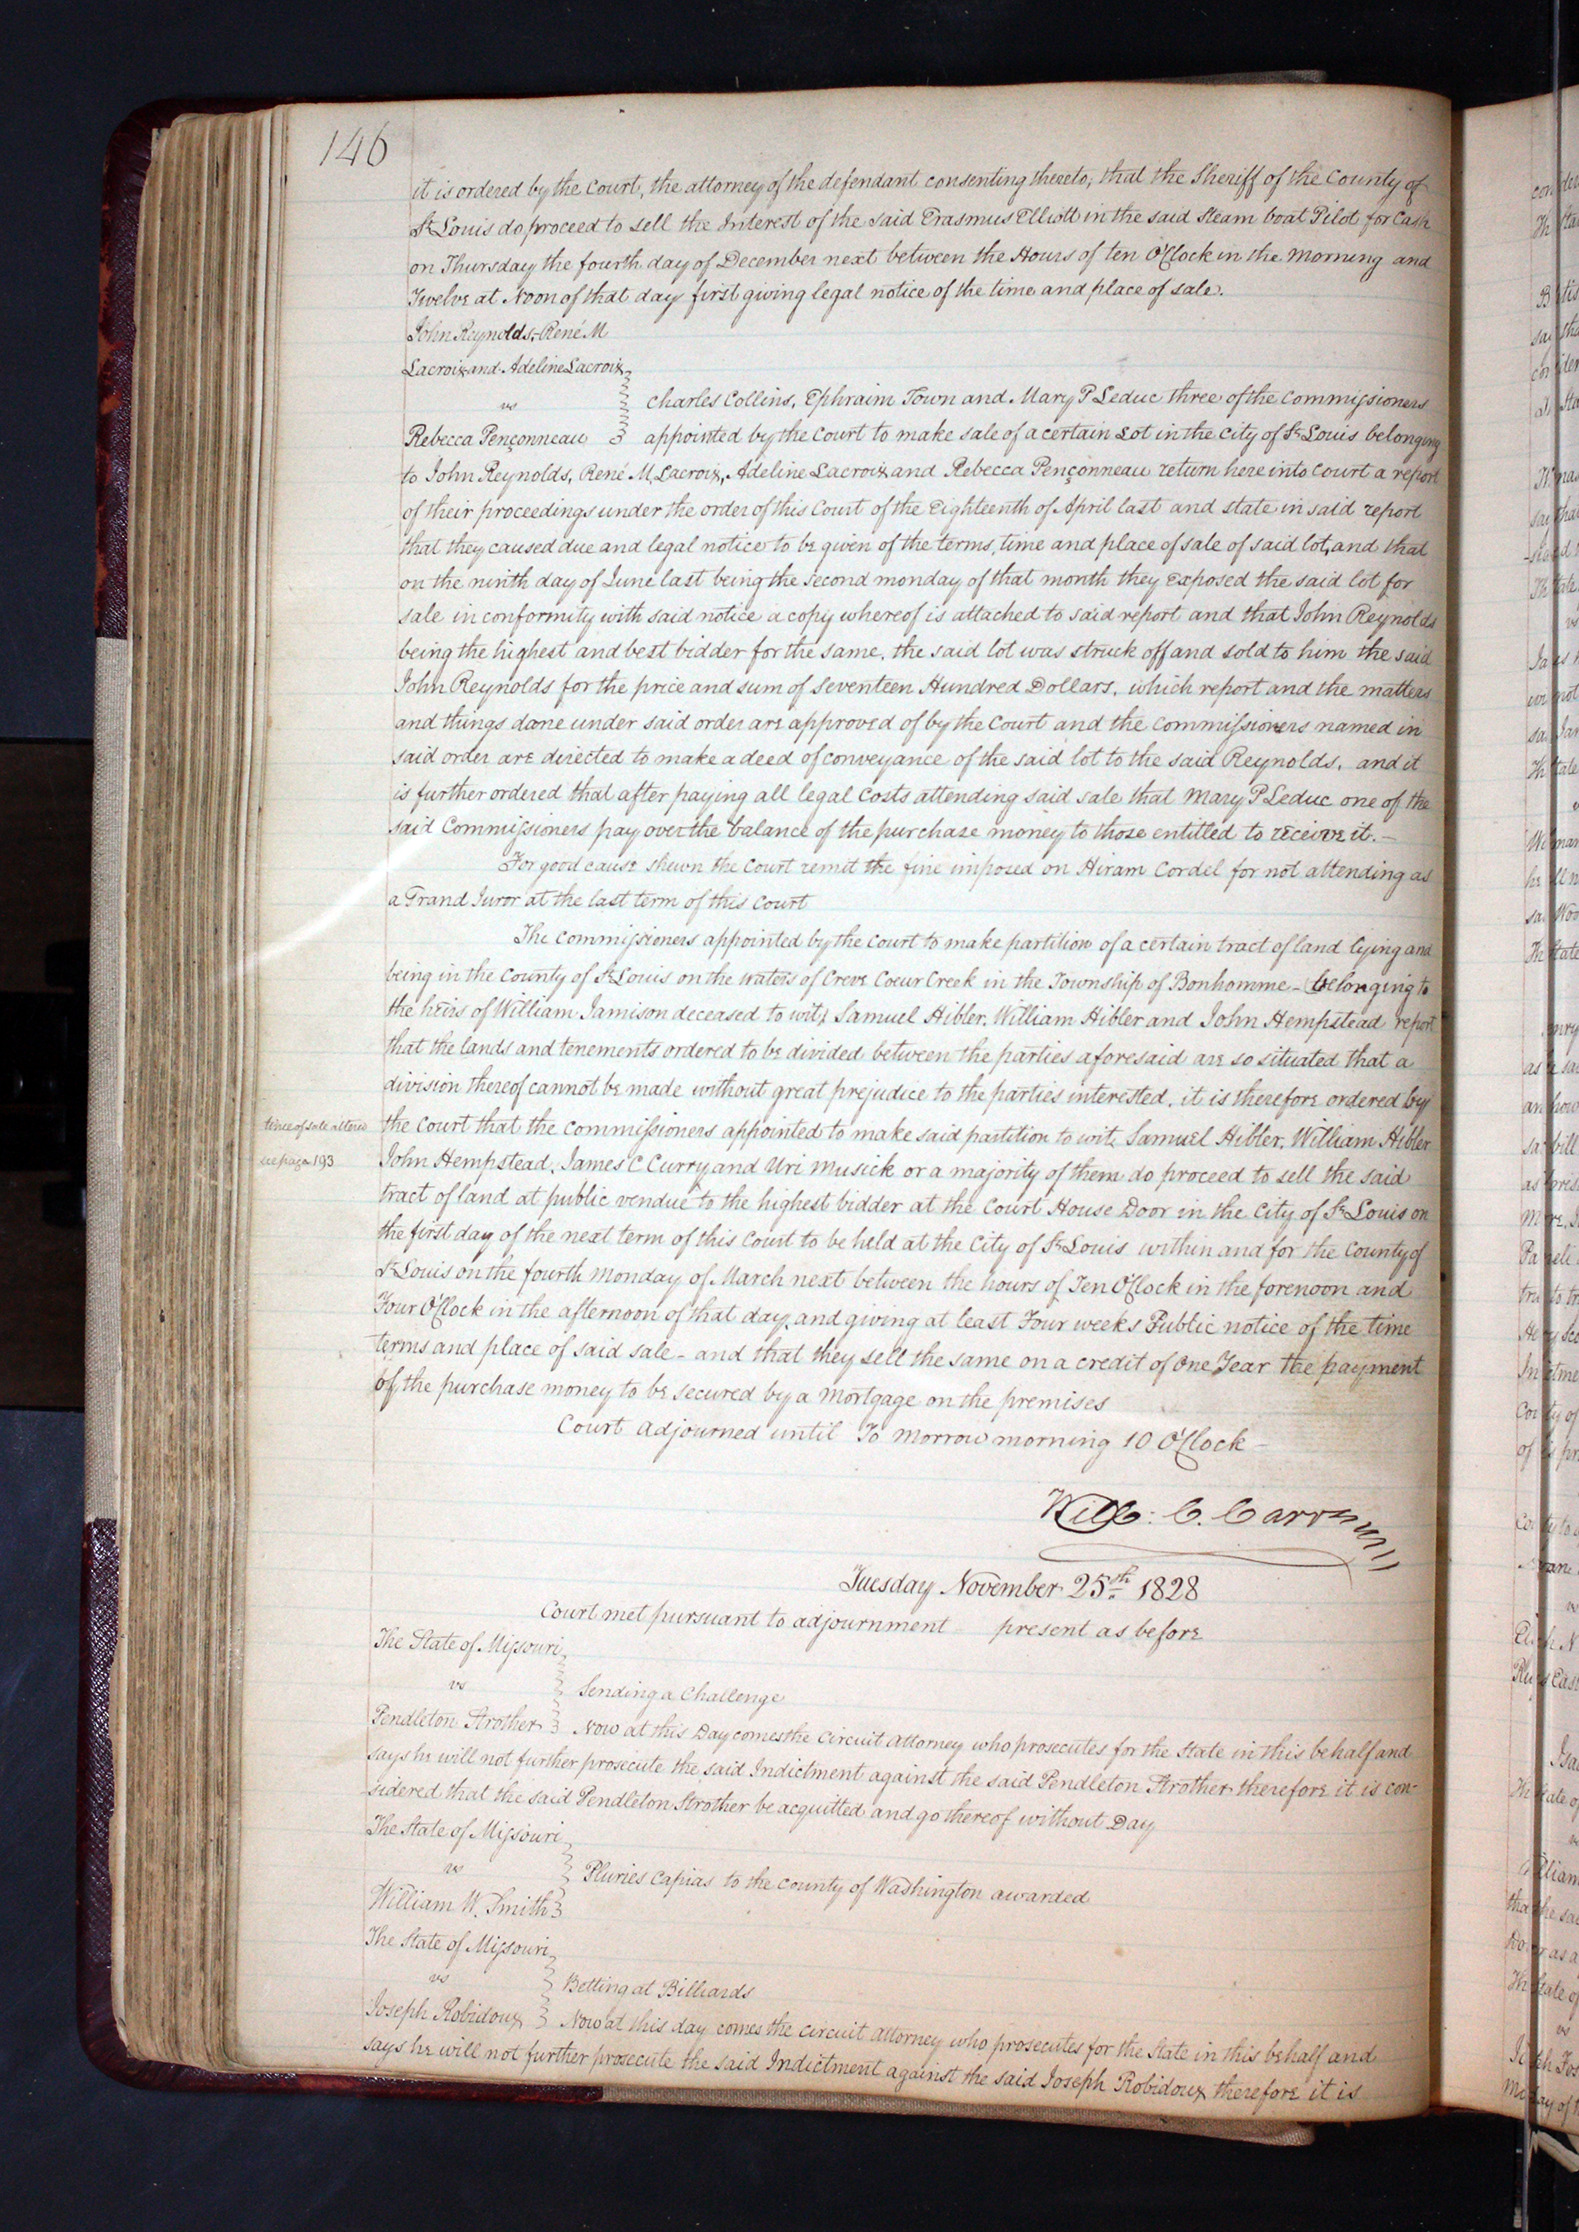 146
it is ordered by the Court, the attorney of the defendant consenting thereto, that the Sheriff of the County of
St Louis do proceed to sell the Interest of the said Erasmus Elliott in the said Steam boat Pilot for Cash
on Thursday the fourth day of December next between the Hours of ten O'Clock in the morning and
Twelve at Noon of that day first giving legal notice of the time and place of sale.
John Reynolds, René M
Lacroix and Adeline Lacroix
vs
Charles Collins, Ephraim Town and Mary P Leduc three of the Commissioners
Rebecca Pençonneau appointed by the Court to make sale of a certain Lot in the City of St Louis belonging
to John Reynolds, René M, Lacroix, Adeline Lacroix and Rebecca Pençonneau return here into Court a report
of their proceedings under the order of this Court of the Eighteenth of April last and state in said report
that they caused due and legal notice to be given of the terms, time and place of sale of said lot, and that
on the ninth day of June last being the second monday of that month they exposed the said lot for
sale in conformity with said notice a copy whereof is attached to said report and that John Reynolds
being the highest and best bidder for the same, the said lot was struck off and sold to him the said
John Reynolds for the price and sum of Seventeen Hundred Dollars, which report and the matters
and things done under said order are approved of by the Court and the Commissioners named in
said order are directed to make a deed of conveyance of the said lot to the said Reynolds, and it
is further ordered that after paying all legal Costs attending said sale that Mary P Leduc one of the
said Commissioners pay over the balance of the purchase money to those entitled to receive it.—
For good cause shewn the Court remit the fine imposed on Hiram Cordel for not attending as
a Grand Juror at the last term of this Court
The Commissioners appointed by the Court to make partition of a certain tract of land lying and
being in the County of St Louis on the waters of Creve Coeur Creek in the Township of Bonhomme - belonging to
the heirs of William Jamison deceased to wit, Samuel Hibler, William Hibler and John Hempstead report
that the lands and tenements ordered to be divided between the parties aforesaid are so situated that a
division thereof cannot be made without great prejudice to the parties interested, it is therefore ordered by
time of sale altered
see page 193
the Court that the Commissioners appointed to make said partition to wit, Samuel Hibler, William Hibler
John Hempstead, James C Curry and Uri Musick or a majority of them do proceed to sell the said
tract of land at public vendue to the highest bidder at the Court House Door in the City of St Louis on
the first day of the next term of this Court to be held at the City of St Louis within and for the County of
St Louis on the fourth Monday of March next between the hours of Ten O'Clock in the forenoon and
Four O'Clock in the afternoon of that day, and giving at least Four weeks Public notice of the time
terms and place of said sale - and that they sell the same on a credit of One Year the payment
of the purchase money to be secured by a Mortgage on the premises
Court adjourned until To morrow morning 10 O'Clock—
Will: C. Carr
Tuesday November 25th 1828
Court met pursuant to adjournment present as before
The State of Missouri
vs
Sending a Challenge
Pendleton Strother Now at this Day comes the Circuit Attorney who prosecutes for the State in this behalf and
says he will not further prosecute the said Indictment against the said Pendleton Strother therefore it is con-
sidered that the said Pendleton Strother be acquitted and go thereof without Day
The State of Missouri
vs
Pluries Capias to the County of Washington awarded
William W. Smith
The State of Missouri
vs
Betting at Billiards
Joseph Robidoux Now at this day comes the Circuit Attorney who prosecutes for the State in this behalf and
says he will not further prosecute the said Indictment against the said Joseph Robidoux therefore it is